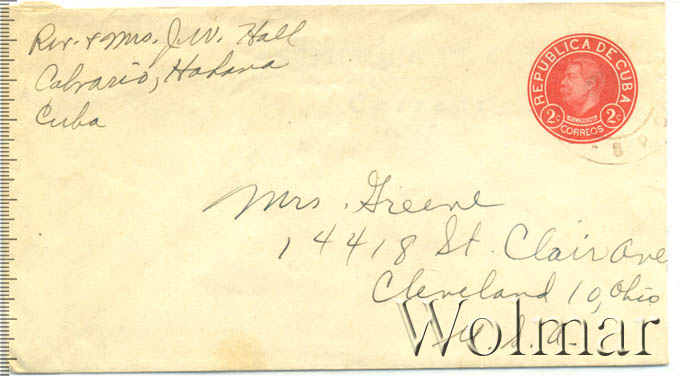 Rev. & Mrs. J.W. Hall
Calvario, Habana
Cuba
REPUBLICA DE CUBA
2c 2c
CORREOS
Mrs. Greene
14418 St. Clair Ave
Cleveland 10, Ohio
U.S.A.
Wolmar